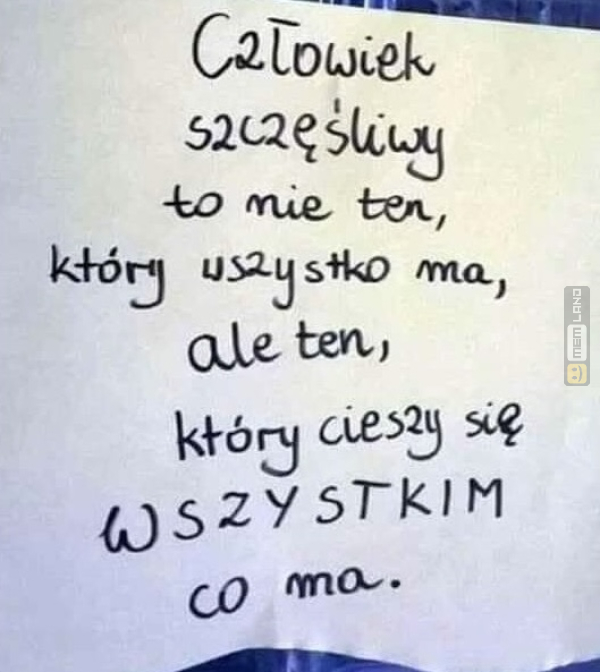 Człowiek
szczęśliwy
to nie ten,
który wszystko ma,
ale ten,
który cieszy się
WSZYSTKIM
co ma.
MEM LAND